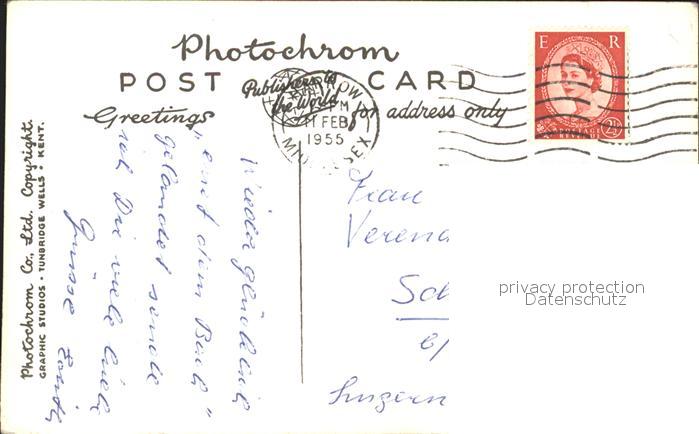 Photochrom
POST CARD
Publishers to
the World
Greetings
for address only
E R
2½
PM
11 FEB
1955
MIDDLESEX
Wieder glücklich
„auf dem Boden"
gelandet sende
ich Dir viele liebe
Grüsse
Frau
Verena
Sch
b/
Luzern
privacy protection
Datenschutz
Photochrom Co., Ltd. Copyright.
GRAPHIC STUDIOS • TUNBRIDGE WELLS • KENT.